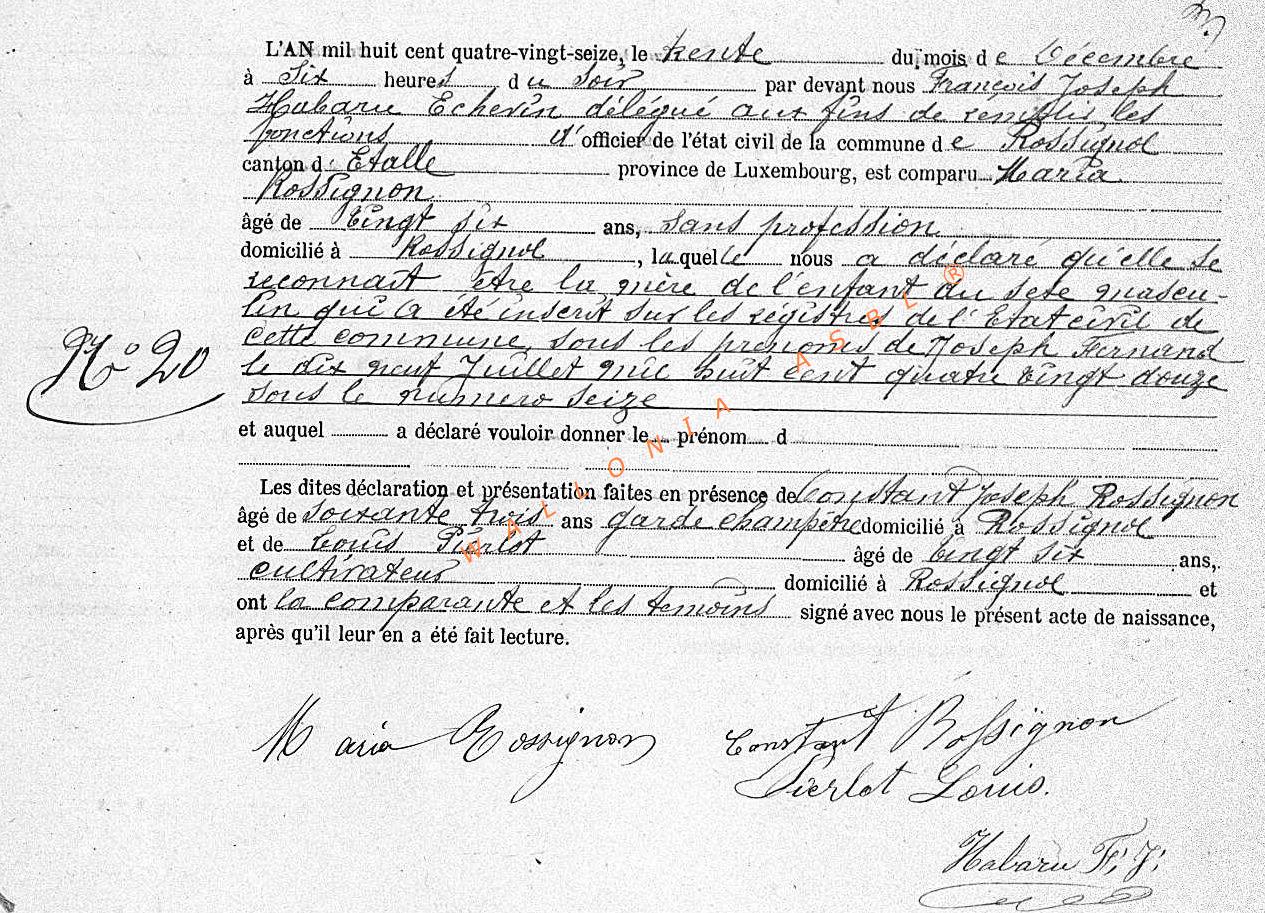 L'AN mil huit cent quatre-vingt-seize, le trente du mois de Décembre
à Six heures du Soir par devant nous François Joseph
Habaru Echevin délégué aux fins de remplir les
fonctions d'officier de l'état civil de la commune de Rossignol
canton d' Etalle province de Luxembourg, est comparu Maria
Rossignon
âgé de vingt six ans, sans profession
domicilié à Rossignol, laquelle nous a déclaré qu'elle se
reconnait être la mère de l'enfant du sexe mascu-
lin qui a été inscrit sur les régistres de l'Etat civil de
cette commune, sous les prénoms de Joseph Fernand
le dix neuf Juillet mil huit cent quatre vingt douze
sous le numero seize
N° 20
et auquel a déclaré vouloir donner le prénom d
Les dites déclaration et présentation faites en présence de Constant Joseph Rossignon
âgé de soixante trois ans garde champêtre domicilié à Rossignol
et de Louis Pierlot âgé de vingt six ans,
cultivateur domicilié à Rossignol et
ont la comparante et les témoins signé avec nous le présent acte de naissance,
après qu'il leur en a été fait lecture.
Maria Rossignon
Constant Rossignon
Pierlot Louis.
Habaru F. J.
WALLONIA ASBL ®